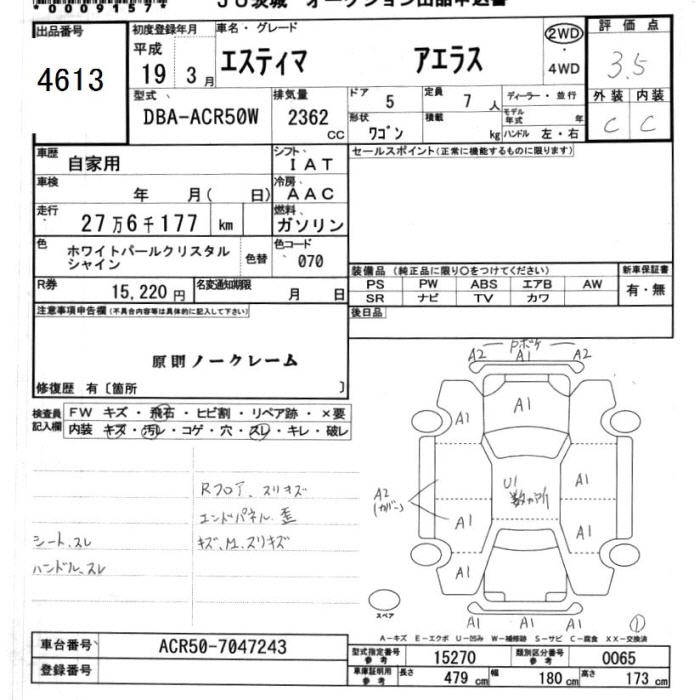 *00091570*
JU茨城 オークション出品申込書
出品番号
4613
初度登録年月
平成
19 3月
車名・グレード
エスティマ アエラス
2WD
・
4WD
評価点
3.5
型式
DBA-ACR50W
排気量
2362
CC
ドア
5
定員
7人
ディーラー・並行
形状
ワゴン
積載
kg
モデル年式
年
ハンドル 左・右
外装 内装
C C
車歴
自家用
シフト
IAT
セールスポイント(正常に機能するものに限ります)
車検
年 月( 日)
冷房
AAC
走行
27万6千177 km
燃料
ガソリン
色
ホワイトパールクリスタル
シャイン
色替
色コード
070
装備品(純正品に限り○をつけてください)
PS PW ABS エアB AW
SR ナビ TV カワ
新車保証書
有・無
R券
15,220円
名変通知期限
月 日
後日品
注意事項申告欄(不具合内容等は具体的に記入して下さい)
原則ノークレーム
修復歴 有〔箇所 〕
検査員
記入欄
FW キズ・飛石・ヒビ割・リペア跡・×要
内装 キズ・汚レ・コゲ・穴・スレ・キレ・破レ
Rフロア、スリキズ
エンドパネル 歪
シート、スレ
キズ、M、スリキズ
ハンドル、スレ
Pボケ
A2 A1 A2
A1
A1
A1
U1
数ヶ所
A1
A2
(カバー)
A1
A1
A1
A1
A1 A1
①
スペア
A-キズ E-エクボ U-凹み W-補修跡 S-サビ C-腐食 XX-交換済
車台番号
ACR50-7047243
型式指定番号
参考
15270
類別区分番号
参考
0065
登録番号
車庫証明用
参考
長さ
479 cm
幅
180 cm
高さ
173 cm